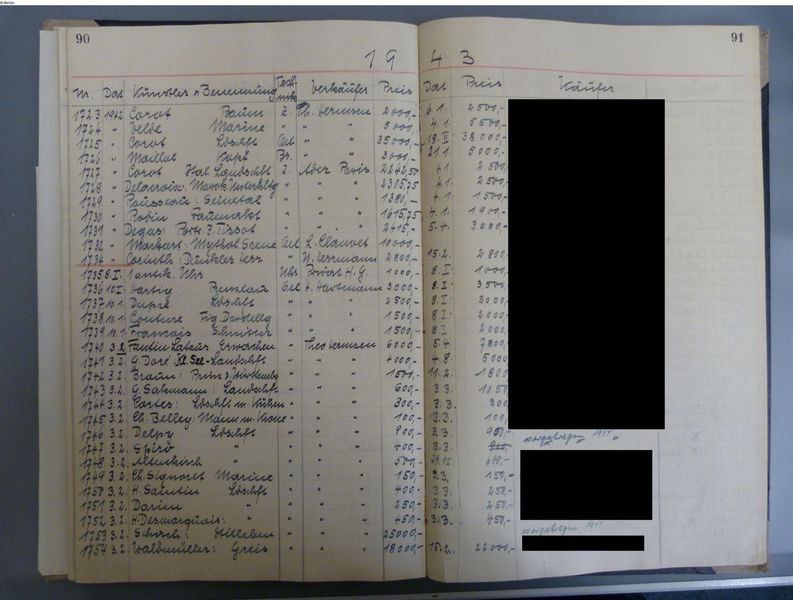 90
91
1943
Nr. Dat Künstler u Benennung Technik Verkäufer Preis Dat Preis Käufer
1723 1942 Corot Baum Z. Th. Hermsen 2000,- 6.1. 2500,-
1724 " Velde Marine " " " 5000,- 4.1. 6500,-
1725 " Corot Ldschft Oel " " 35000,- 18.II 38000,-
1726 " Maillol Kopf Br. " " 3000,- 21.1 5000,-
1727 " Corot Ital. Landschft Z. Ader Paris 2242,50 4.1 2500,-
1728 " Delacroix: " " " 2305,75 4.1. 2500,-
1729 " Rousseau: " " " 1380,- 4.1. 1500,-
1730 " Robin " " " 1615,75 4.1. 1900,-
1731 " Degas: Portr. J. Tissot " " " 2415,- 5.4. 3000,-
1732 " Markart: Mythol Scene Oel L. Clauvet 10000,-
1734 " Corinth: Dunkler Herr " W. Herrmann 2800,- 15.2. 2800,-
1735 8.I. 1 antik. Uhr Uhr Privat H.G. 1000,- 8.I. 1000,-
1736 10.I. Hartig Bunzlau Oel A. Hartmann 3000,- 8.I. 3500,-
1737 10.1. Dupré Ldschft " " " 2500,- 8.I. 3000,-
1738 10.1. Couture Fig. Darstellg " " " 1500,- 8.I. 2000,-
1739 10.1. Francais " " " 1500,- 8.I. 2000,-
1740 3.2. Fantin Latour Erwachen " Theo Hermsen 6000,- 5.4 7800,-
1741 3.2. G. Doré Kl. See-Landschft " " " 4000,- 4.8. 5000,-
1742 3.2. Braun: Prinz v. " " " 1500,- 11.2. 1800,-
1743 3.2. G. Salzmann: Landschft " " " 600,- 3.3. 1050
1744 3.2. Cortes: Ldschft m. Kühen " " " 300,- 3.3. 300,-
1745 3.2. Ch. Belley: Mann m. " " " 100,- 3.3. 100,-
1746 3.2. Delpy Ldschft " " " 900,- 3.3. 900,- vorgetragen 1944
1747 3.2. Spiro " " " " 400,- 3.3.
1748 3.2. Altenkirch " " " " 500,-
1749 3.2. Ch. Signoret Marine " " " 150,- 3.3. 150,-
1750 3.2. H. Saintin Ldschft " " " 400,- 3.3. 250,-
1751 3.2. Darien " " " " 250,- 3.3. 250,-
1752 3.2. H. Desmarquais: " " " " 450,- 3.3. 450,-
1753 3.2. Schuch: Stilleben " " " 25000,- vorgetragen
1754 3.2. Waldmüller: Greis " " " 18000,- 15.2. 22000,-